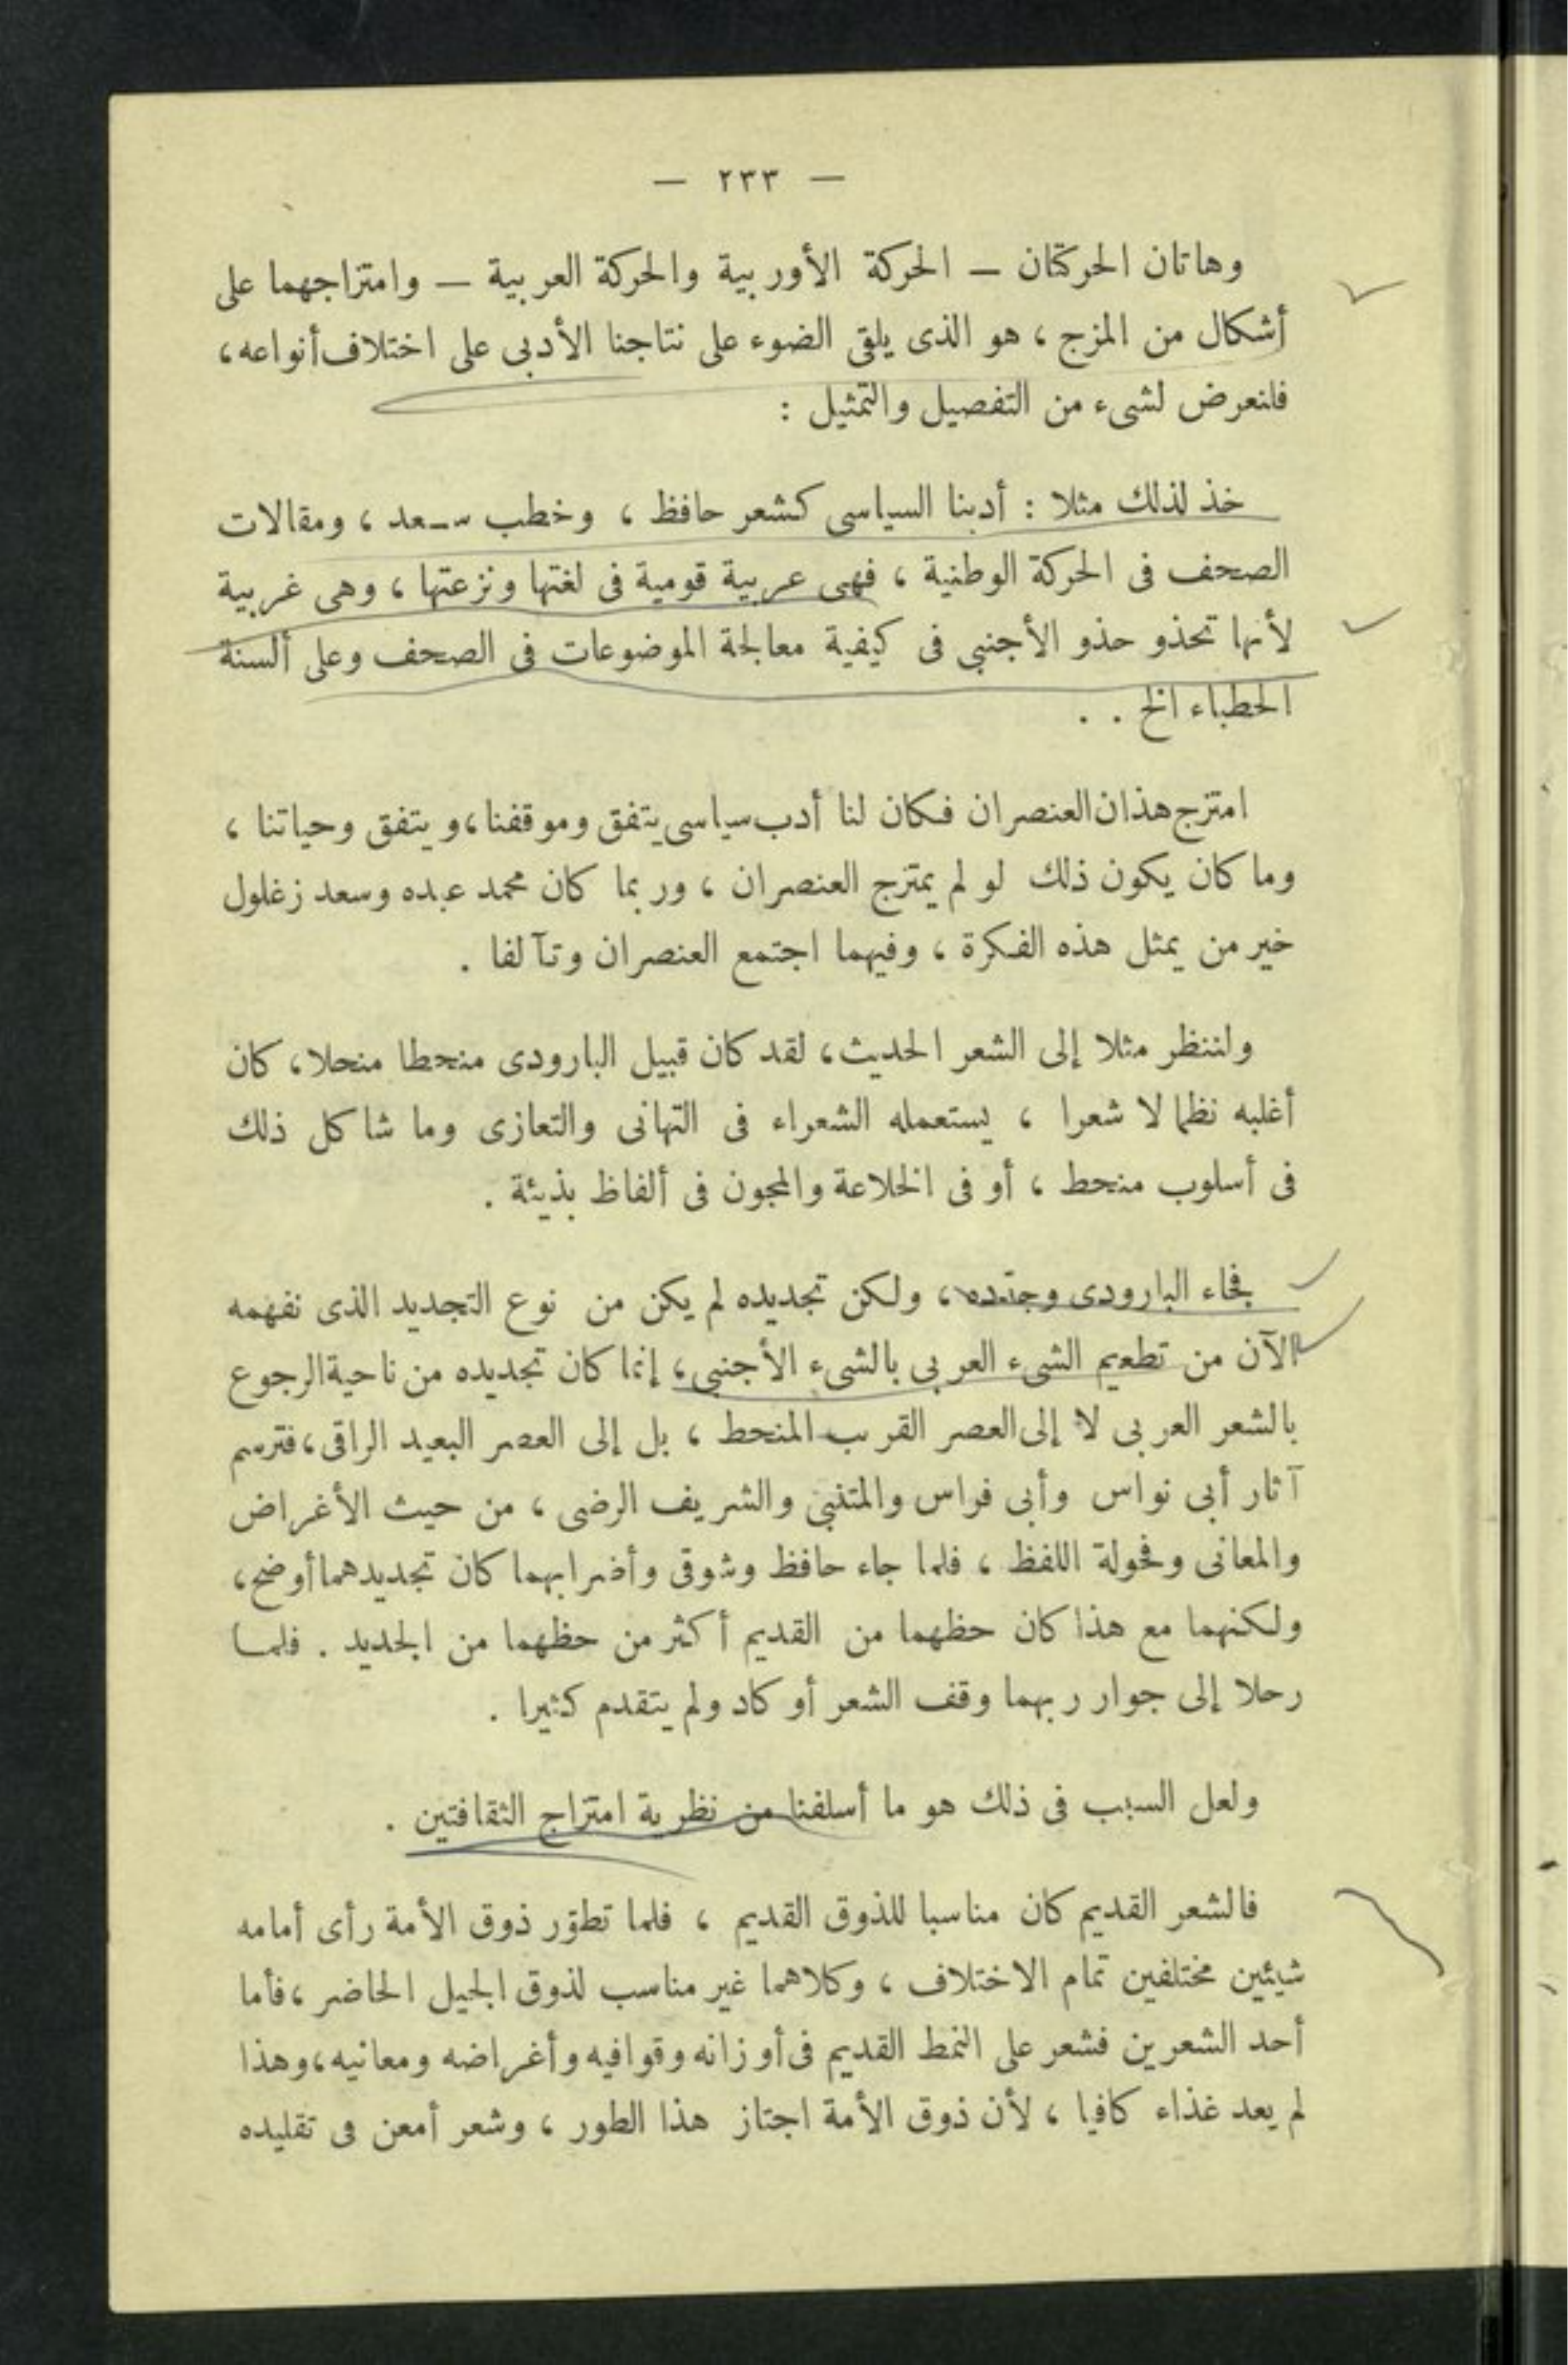 — ٢٣٣ —
وهاتان الحركتان — الحركة الأوربية والحركة العربية — وامتزاجهما على
أشكال من المزج ، هو الذى يلقى الضوء على نتاجنا الأدبى على اختلاف أنواعه ،
فلنعرض لشىء من التفصيل والتمثيل :
خذ لذلك مثلا : أدبنا السياسى كشعر حافظ ، وخطب سعد ، ومقالات
الصحف فى الحركة الوطنية ، فهى عربية قومية فى لغتها ونزعتها ، وهى غربية
لأنها تحذو حذو الأجنبى فى كيفية معالجة الموضوعات فى الصحف وعلى ألسنة
الخطباء الخ . .
امتزج هذان العنصران فكان لنا أدب سياسى يتفق وموقفنا ، ويتفق وحياتنا ،
وما كان يكون ذلك لو لم يمتزج العنصران ، وربما كان محمد عبده وسعد زغلول
خير من يمثل هذه الفكرة ، وفيهما اجتمع العنصران وتآلفا .
ولننظر مثلا إلى الشعر الحديث ، لقد كان قبيل البارودى منحطا منحلا ، كان
أغلبه نظما لا شعرا ، يستعمله الشعراء فى التهانى والتعازى وما شاكل ذلك
فى أسلوب منحط ، أو فى الخلاعة والمجون فى ألفاظ بذيئة .
فجاء البارودى وجدّده ، ولكن تجديده لم يكن من نوع التجديد الذى نفهمه
الآن من تطعيم الشىء العربى بالشىء الأجنبى ، إنما كان تجديده من ناحية الرجوع
بالشعر العربى لا إلى العصر القريب المنحط ، بل إلى العصر البعيد الراقى ، فترسم
آثار أبى نواس وأبى فراس والمتنبى والشريف الرضى ، من حيث الأغراض
والمعانى وفحولة اللفظ ، فلما جاء حافظ وشوقى وأضرابهما كان تجديدهما أوضح ،
ولكنهما مع هذا كان حظهما من القديم أكثر من حظهما من الجديد . فلما
رحلا إلى جوار ربهما وقف الشعر أو كاد ولم يتقدم كثيرا .
ولعل السبب فى ذلك هو ما أسلفنا من نظرية امتزاج الثقافتين .
فالشعر القديم كان مناسبا للذوق القديم ، فلما تطوّر ذوق الأمة رأى أمامه
شيئين مختلفين تمام الاختلاف ، وكلاهما غير مناسب لذوق الجيل الحاضر ، فأما
أحد الشعرين فشعر على النمط القديم فى أوزانه وقوافيه وأغراضه ومعانيه ، وهذا
لم يعد غذاء كافيا ، لأن ذوق الأمة اجتاز هذا الطور ، وشعر أمعن فى تقليده